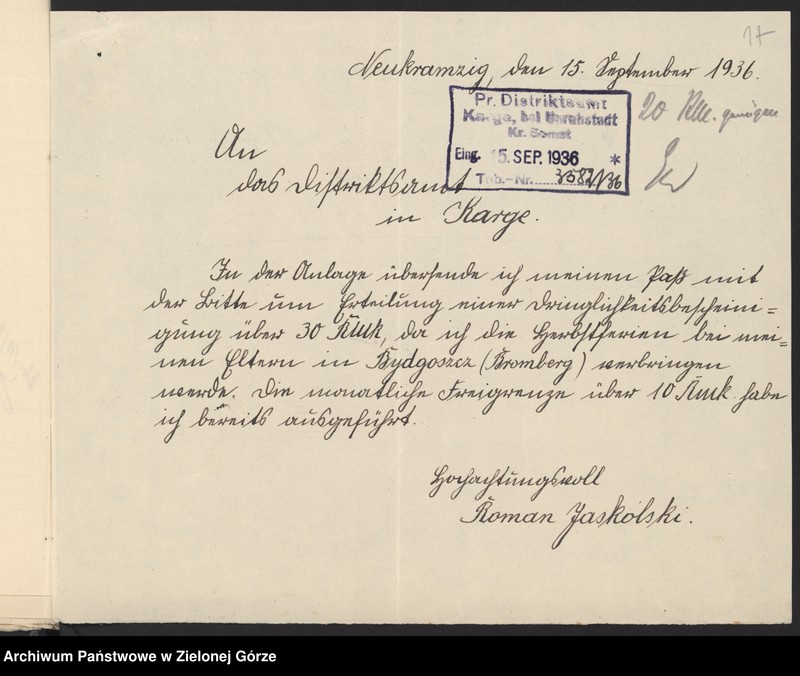 17
Neukramzig, den 15. September 1936.
Pr. Distriktsamt
Karge, bei Unruhstadt
Kr. Bomst
Eing. 15. SEP. 1936 *
Tgb.-Nr. 3587/36
20 RM. genügen
An
das Distriktsamt
in Karge.
In der Anlage übersende ich meinen Paß mit
der Bitte um Erteilung einer Dringlichkeitsbescheini=
gung über 30 Rmk, da ich die Herbstferien bei mei=
nen Eltern in Bydgoszcz (Bromberg) verbringen
werde. Die monatliche Freigrenze über 10 Rmk. habe
ich bereits ausgeführt.
Hochachtungsvoll
Roman Jaskólski.
Archiwum Państwowe w Zielonej Górze